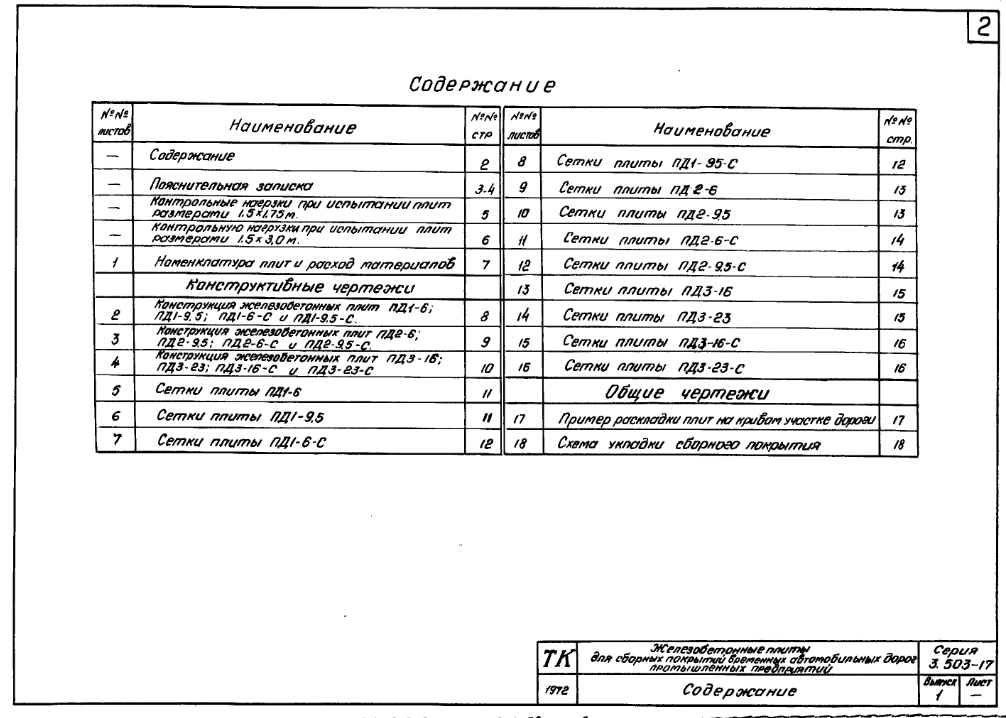 2
Содержание
№№ листов Наименование №№ стр
— Содержание 2
— Пояснительная записка 3.4
— Контрольные нагрзки при испытании плит
размерами 1.5×1.75 м. 5
— Контрольную нагрузки при испытании плит
размерами 1.5×3,0 м. 6
1 Номенклатура плит и расход материалов 7
Конструктивные чертежи
2 Конструкция железобетонных плит ПД1-6;
ПД1-9.5; ПД1-6-С и ПД1-9.5-С. 8
3 Конструкция железобетонных плит ПД2-6;
ПД2-9.5; ПД2-6-С и ПД2-9.5-С. 9
4 Конструкция железобетонных плит ПД3-16;
ПД3-23; ПД3-16-С и ПД3-23-С 10
5 Сетки плиты ПД1-6 11
6 Сетки плиты ПД1-9,5 11
7 Сетки плиты ПД1-6-С 12
№№ листов Наименование №№ стр.
8 Сетки плиты ПД1-95-С 12
9 Сетки плиты ПД2-6 13
10 Сетки плиты ПД2-95 13
11 Сетки плиты ПД2-6-С 14
12 Сетки плиты ПД2-9,5-С 14
13 Сетки плиты ПД3-16 15
14 Сетки плиты ПД3-23 15
15 Сетки плиты ПД3-16-С 16
16 Сетки плиты ПД3-23-С 16
Общие чертежи
17 Пример раскладки плит на кривом участке дороги 17
18 Схема укладки сборного покрытия 18
ТК
Железобетонные плиты
для сборных покрытий временных автомобильных дорог
промышленных предприятий
Серия
3.503-17
1972
Содержание
Выпуск Лист
1 —